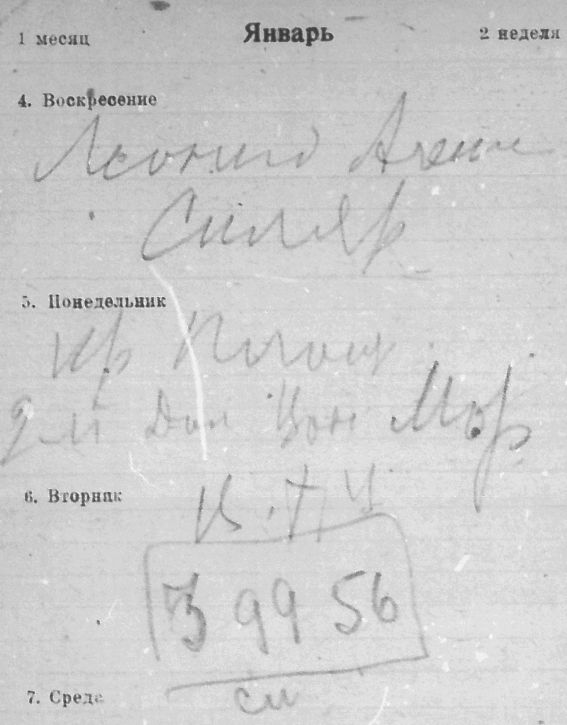 1 месяц Январь 2 неделя
4. Воскресение
Леонид
Силляр
5. Понедельник
Кр Площ.
2й Дом Мор
6. Вторник
3 99 56
7. Среда